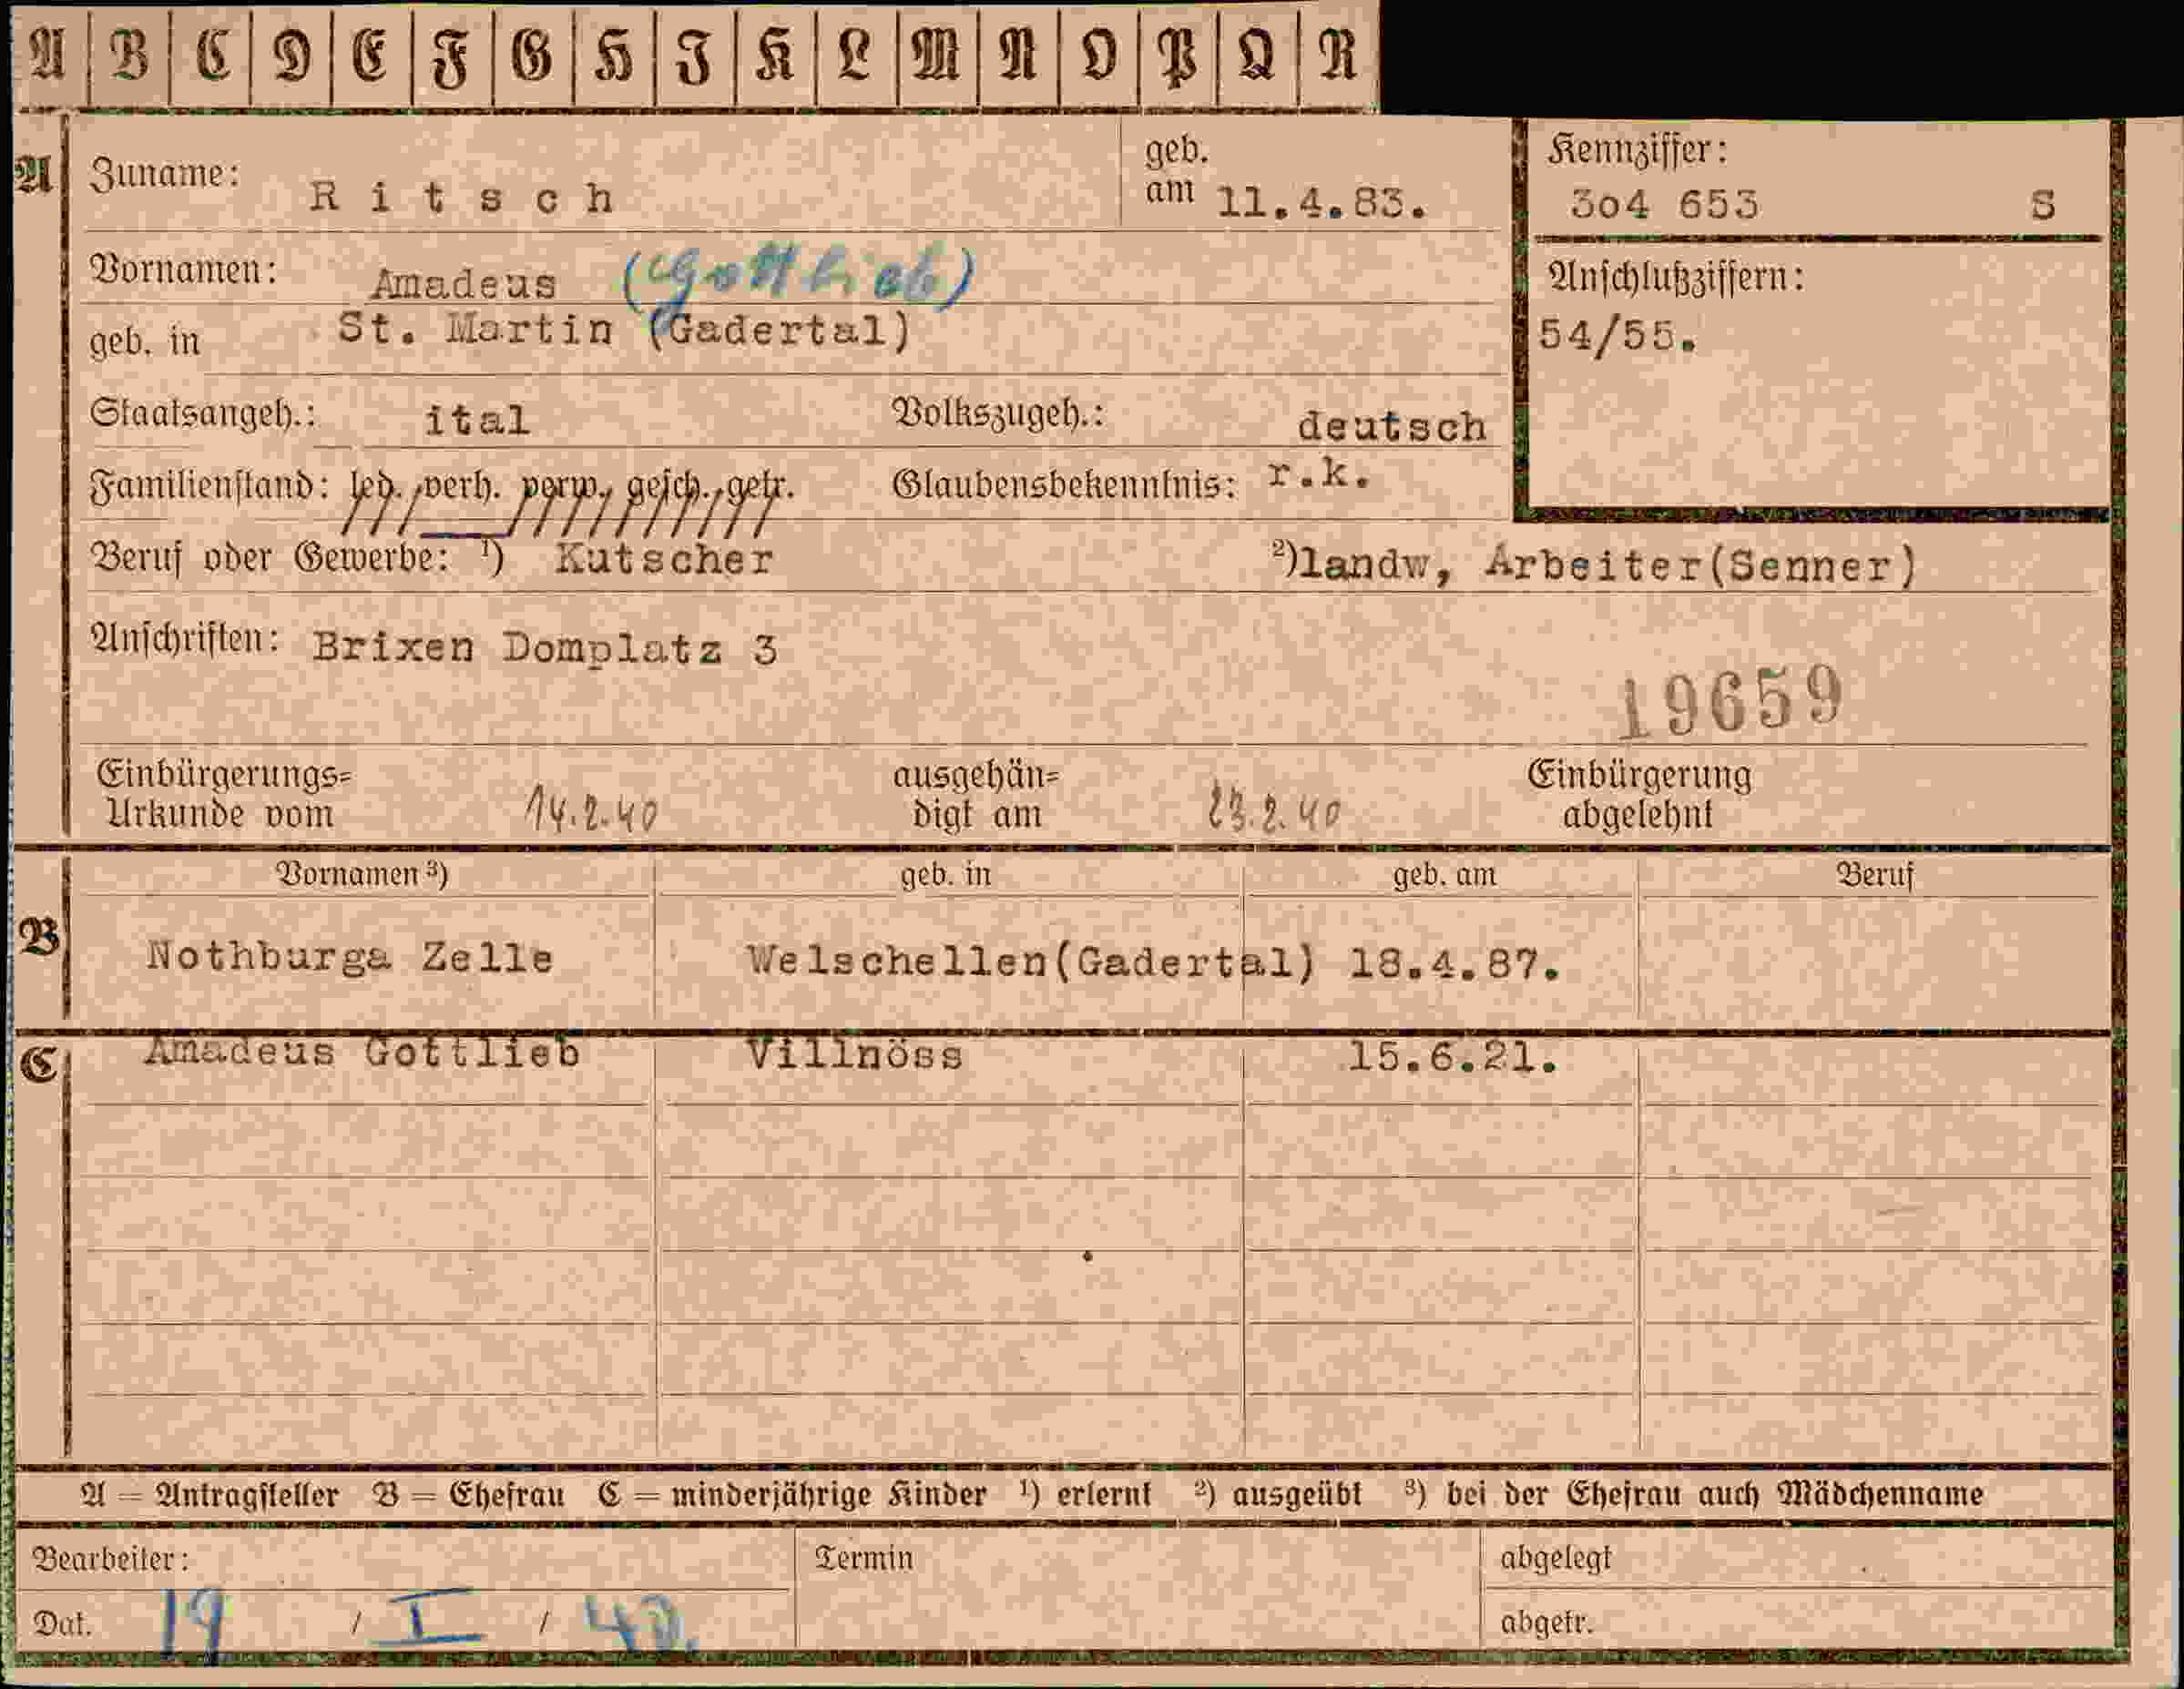 A B C D E F G H I K L M N O P Q R
A Zuname: Ritsch geb. am 11.4.83. Kennziffer: 304 653 S
Vornamen: Amadeus (Gottlieb) Anschlußziffern:
geb. in St. Martin (Gadertal) 54/55.
Staatsangeh.: ital Volkszugeh.: deutsch
Familienstand: led., verh. verw., gesch., getr. Glaubensbekenntnis: r.k.
Beruf oder Gewerbe: ¹) Kutscher ²) landw, Arbeiter(Senner)
Anschriften: Brixen Domplatz 3
19659
Einbürgerungs= ausgehän= Einbürgerung
Urkunde vom 14.2.40 digt am 23.2.40 abgelehnt
Vornamen ³) geb. in geb. am Beruf
B Nothburga Zelle Welschellen(Gadertal) 18.4.87.
C Amadeus Gottlieb Villnöss 15.6.21.
A = Antragsteller B = Ehefrau C = minderjährige Kinder ¹) erlernt ²) ausgeübt ³) bei der Ehefrau auch Mädchenname
Bearbeiter: Termin abgelegt
Dat. 19 / I / 40. abgetr.